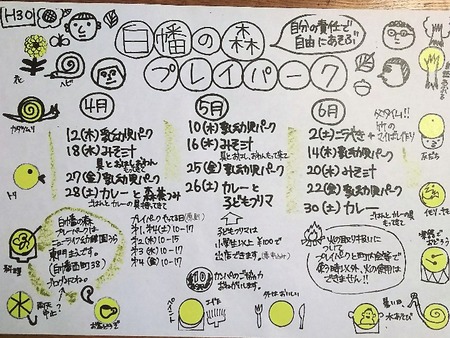 H30
白幡の森
プレイパーク
自分の責任で
自由にあそぶ
花
ヘビ
カタツムリ
トリ
料理
4月
12(木)乳幼児パーク
18(水)みそ汁
具とおわん もって来て
27(金)乳幼児パーク
28(土)カレーと森茶つみ
ごはんとカレーの具 持って来て
5月
10(木)乳幼児パーク
16(水)みそ汁
具とおはし、おわんもって来て
25(金)乳幼児パーク
26(土)カレーと
子どもフリマ
6月
2(土)ニラやき+
竹の
マイばし作り
14(木)乳幼児パーク
20(水)みそ汁
22(金)乳幼児パーク
30(土)カレー
ごはんとカレーの具
もって来て
友だち
白幡の森
プレイパークは
東門まえです。
(白幡西町38)
ブログみてね
プレイパークやってる日(原則)
オ1、オ4(土)10-17
オ2(木)10-15
オ3(水)10-17
オ4(金)10-17
子どもフリマは
小学生以上¥100で
出店できます
火の取り扱いに
ついて
プレイパークと町内会等で
使う時以外、火の使用は
できません!!
10
カンパのご協力
おねがいします。
雨天
中止?
お茶どうぞ
ペイント
工作
外はおいしい
音楽で
おどろう
暑い日、
水あそび